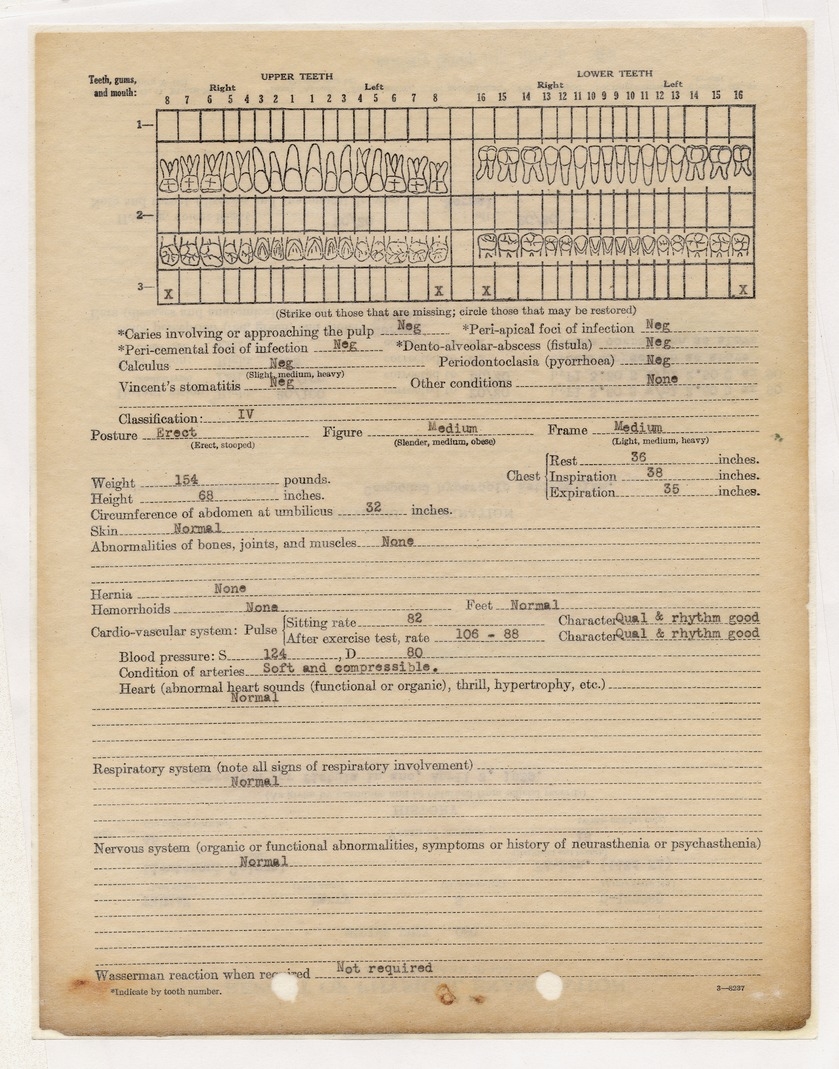 Teeth, gums, and mouth:
UPPER TEETH
LOWER TEETH
Right Left Right Left
8 7 6 5 4 3 2 1 1 2 3 4 5 6 7 8 16 15 14 13 12 11 10 9 9 10 11 12 13 14 15 16
1—
2—
3—
X X X X
(Strike out those that are missing; circle those that may be restored)
*Caries involving or approaching the pulp Neg *Peri-apical foci of infection Neg
*Peri-cemental foci of infection Neg *Dento-alveolar-abscess (fistula) Neg
Calculus Neg Periodontoclasia (pyorrhoea) Neg
(Slight, medium, heavy)
Vincent's stomatitis Neg Other conditions None
Classification: IV
Posture Erect Figure Medium Frame Medium
(Erect, stooped) (Slender, medium, obese) (Light, medium, heavy)
Rest 36 inches.
Weight 154 pounds. Chest Inspiration 38 inches.
Height 68 inches. Expiration 35 inches.
Circumference of abdomen at umbilicus 32 inches.
Skin Normal
Abnormalities of bones, joints, and muscles None
Hernia None
Hemorrhoids None Feet Normal
Cardio-vascular system: Pulse Sitting rate 82 Character Qual & rhythm good
After exercise test, rate 106 - 88 Character Qual & rhythm good
Blood pressure: S 124, D 80
Condition of arteries Soft and compressible.
Heart (abnormal heart sounds (functional or organic), thrill, hypertrophy, etc.)
Normal
Respiratory system (note all signs of respiratory involvement)
Normal
Nervous system (organic or functional abnormalities, symptoms or history of neurasthenia or psychasthenia)
Normal
Wasserman reaction when required Not required
*Indicate by tooth number. 3—8237